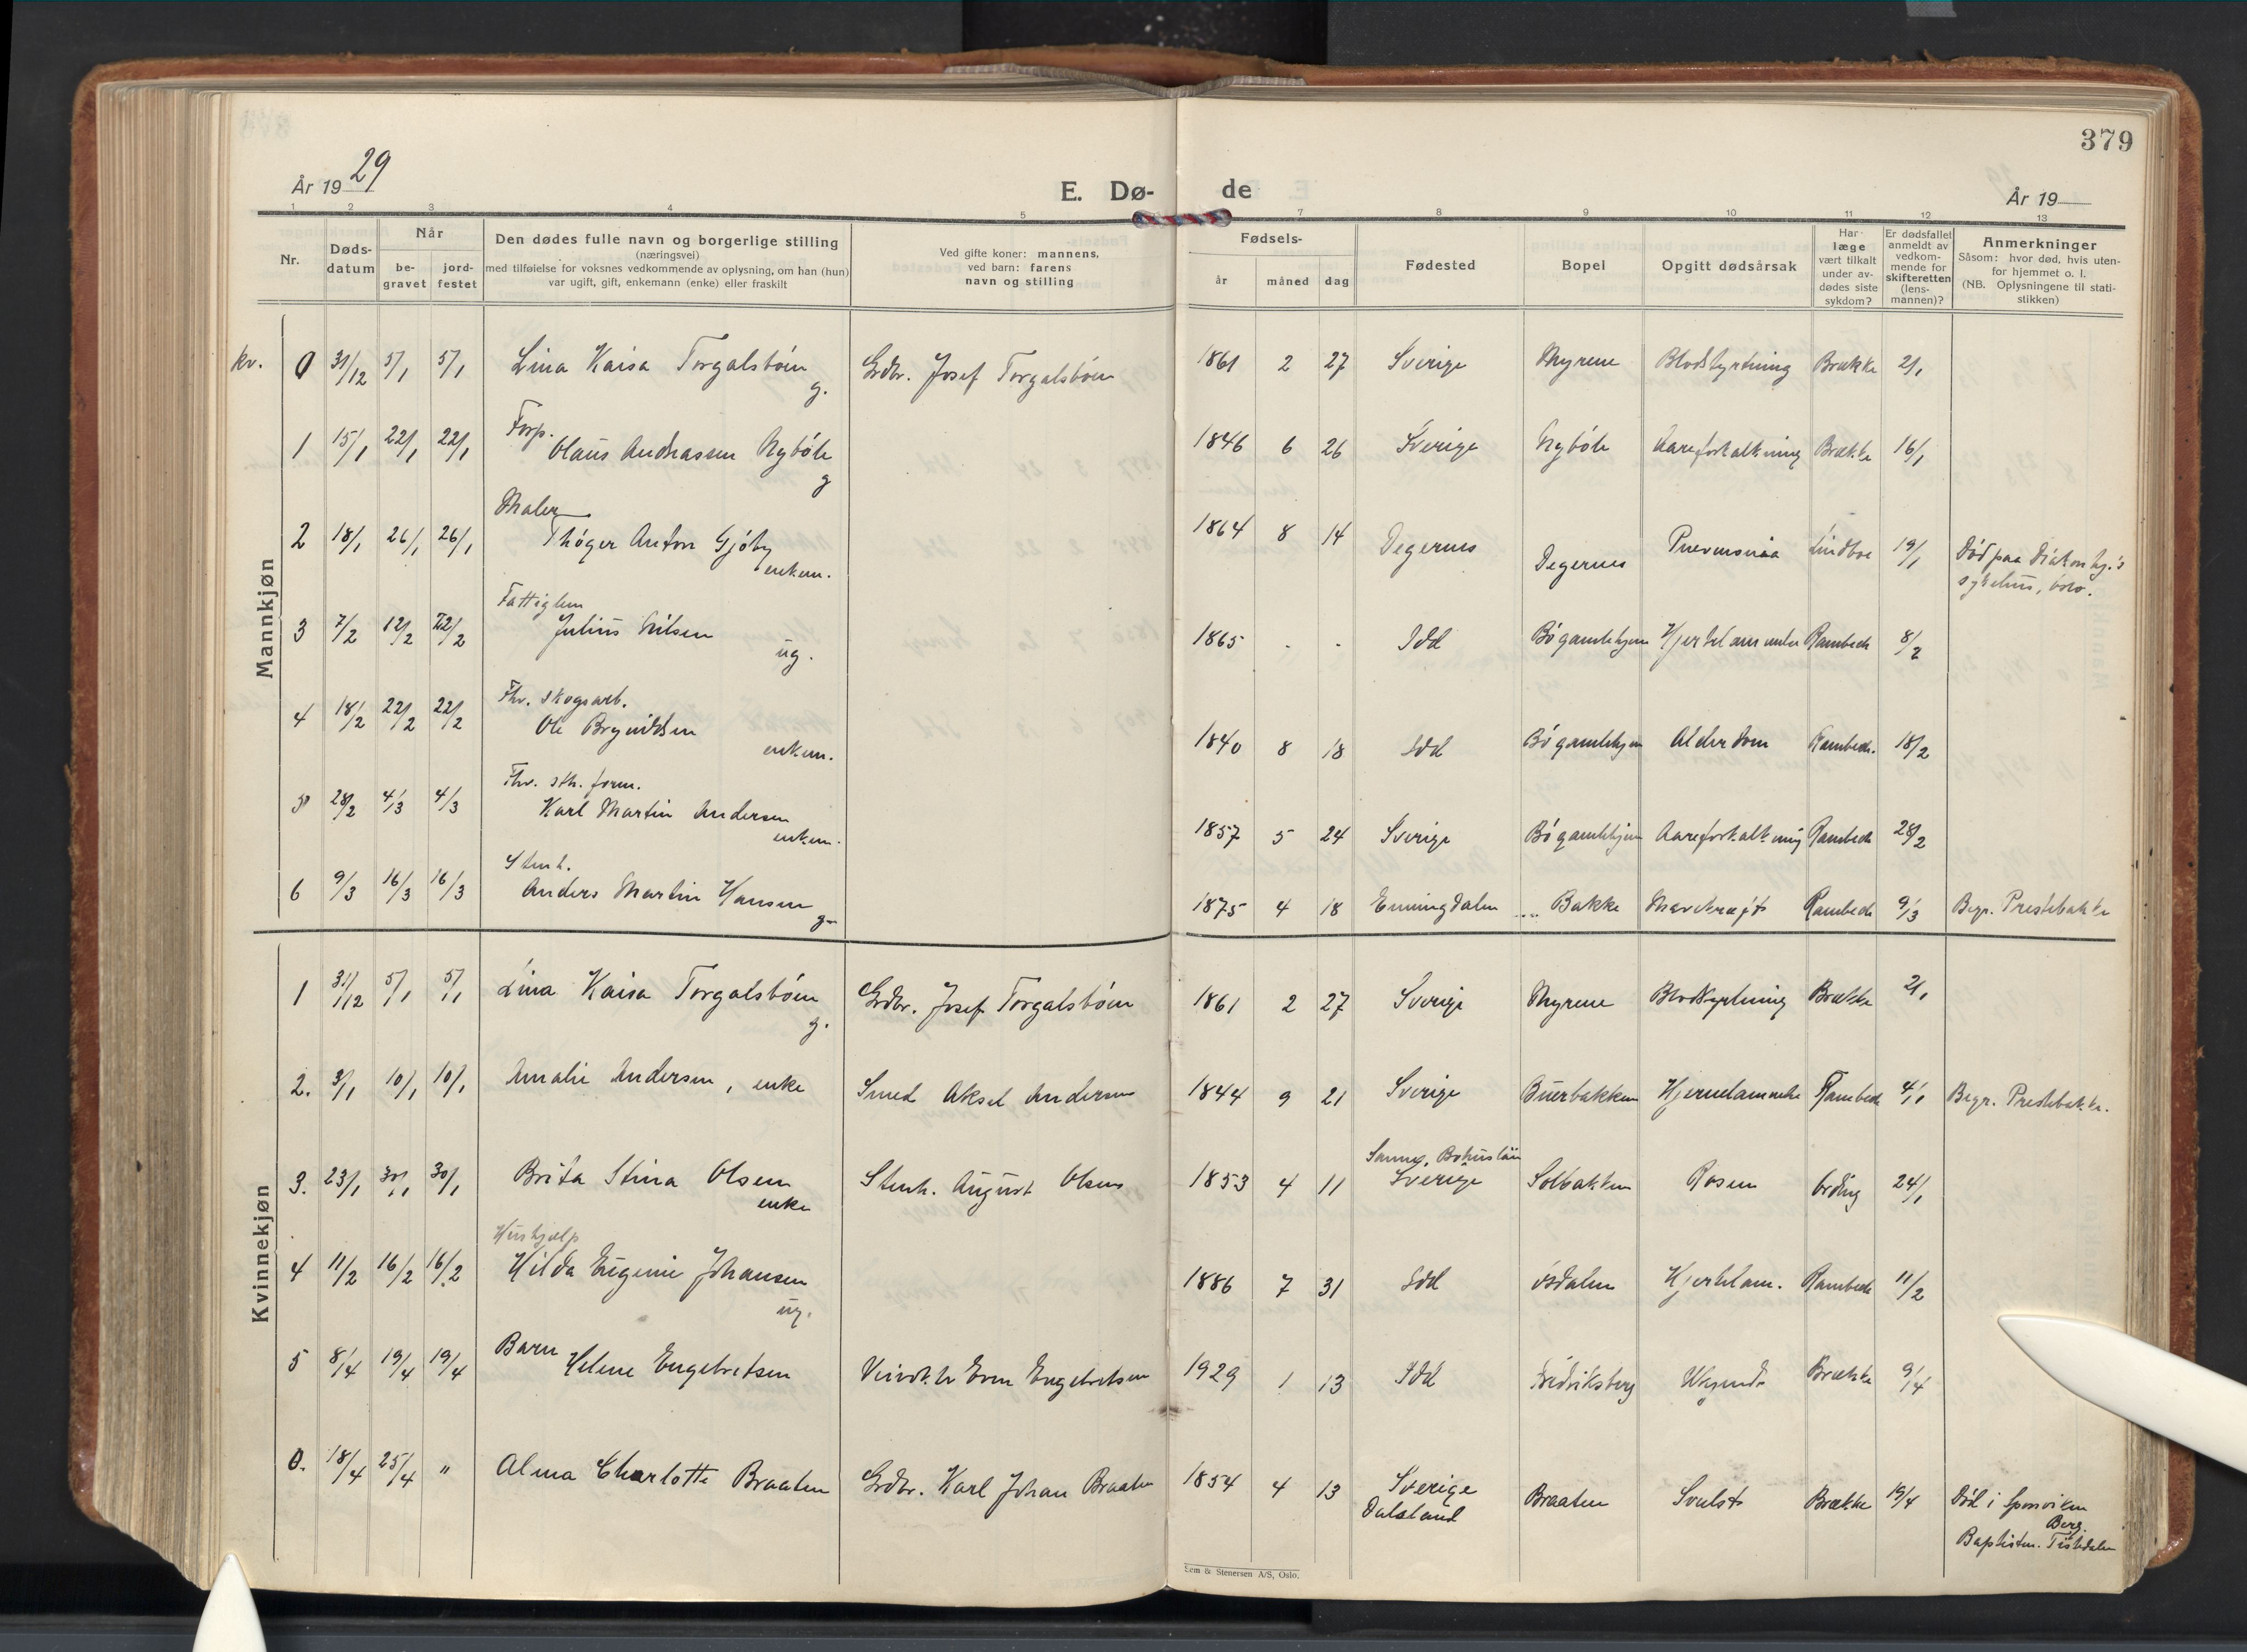 379
År 1929
E. Dø- de
År 19
1 2 3 4 5 7 8 9 10 11 12 13
Nr.
Døds-
datum
Når
be-
gravet
jord-
festet
Den dødes fulle navn og borgerlige stilling
(næringsvei)
med tilføielse for voksnes vedkommende av oplysning, om han (hun)
var ugift, gift, enkemann (enke) eller fraskilt
Ved gifte koner: mannens,
ved barn: farens
navn og stilling
Fødsels-
år måned dag
Fødested
Bopel
Opgitt dødsårsak
Har
læge
vært tilkalt
under av-
dødes siste
sykdom?
Er dødsfallet
anmeldt av
vedkom-
mende for
skifteretten
(lens-
mannen)?
Anmerkninger
Såsom: hvor død, hvis uten-
for hjemmet o. l.
(NB. Oplysningene til stati-
stikken)
Mannkjøn
kv. 0 31/12 5/1 5/1 Lina Kaisa Torgalsbøen g. Grdbr. Josef Torgalsbøen 1861 2 27 Sverige Myrene Blodstyrtning Brække 2/1
Forp.
1 15/1 22/1 22/1 Olaus Andreassen Nybøle g 1846 6 26 Sverige Nybøle Aareforkalkning Brække 16/1
Maler
2 18/1 26/1 26/1 Thøger Anton Gjøby enkem. 1864 8 14 Degernes Degernes Lindboe 19/1 Død paa Diakonhj.'s
sykehus, Oslo.
Fattiglem
3 7/2 12/2 12/2 Julius Nilsen ug. 1865 - - Idd Bø gamlehjem Hjertelammelse Rambech 8/2
Fhv. skogsarb.
4 18/2 22/2 22/2 Ole Brynildsen enkem. 1840 8 18 Idd Bø gamlehjem Alderdom Rambech. 18/2
Fhv. sth. form.
5 28/2 4/3 4/3 Karl Martin Andersen enkem. 1857 5 24 Sverige Bø gamlehjem Aareforkalkning Rambech 28/2
Stenh.
6 9/3 16/3 16/3 Anders Martin Hansen g 1875 4 18 Enningdalen Bakke Mavekræft Rambech 9/3 Begr. Prestebakke
Kvinnekjøn
1 31/12 5/1 5/1 Lina Kaisa Torgalsbøen g. Grdbr. Josef Torgalsbøen 1861 2 27 Sverige Myrene Blodstyrtning Brække 2/1
2. 3/1 10/1 10/1 Amalie Andersen, enke Smed Aksel Andersen 1844 9 21 Sverige Buerbakken Hjernelammelse Rambech 4/1 Begr. Prestebakke.
3. 23/1 30/1 30/1 Brita Stina Olsen enke Stenh. August Olsens 1853 4 11 Sanne, Bohuslän
Sverige Solbakken Rosen Ording 24/1
Hushjælp
4 11/2 16/2 16/2 Hilda Eugenie Johansen ug. 1886 7 31 Idd Osdalen Hjertelam. Rambech 11/2
Barn
5 8/4 19/4 19/4 Helene Engebretsen Even Engebretsen 1929 1 13 Idd Fredriksberg Brække 9/4
0. 18/4 25/4 " Alma Charlotte Braaten Grdbr. Karl Johan Braaten 1854 4 13 Sverige
Dalsland Braaten Svulst Brække 19/4 Død i Sponviken
Berg.
Baptisten. Tistedalen
Sem & Stenersen A/S, Oslo.